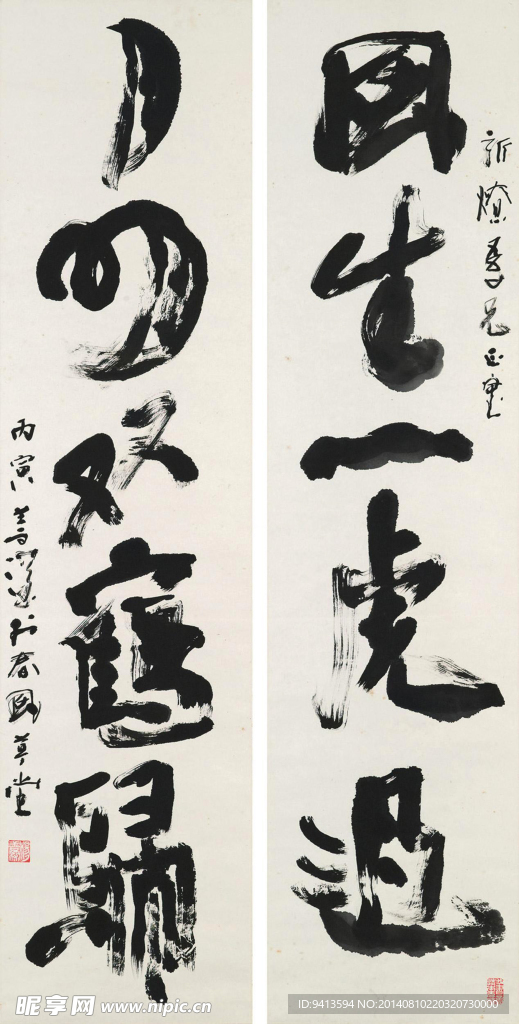 風生一虎過
燎吾兄正
月明双鶴歸
丙寅善深於春風草堂
昵享网 www.nipic.cn
ID:9413594 NO:20140810220320730000